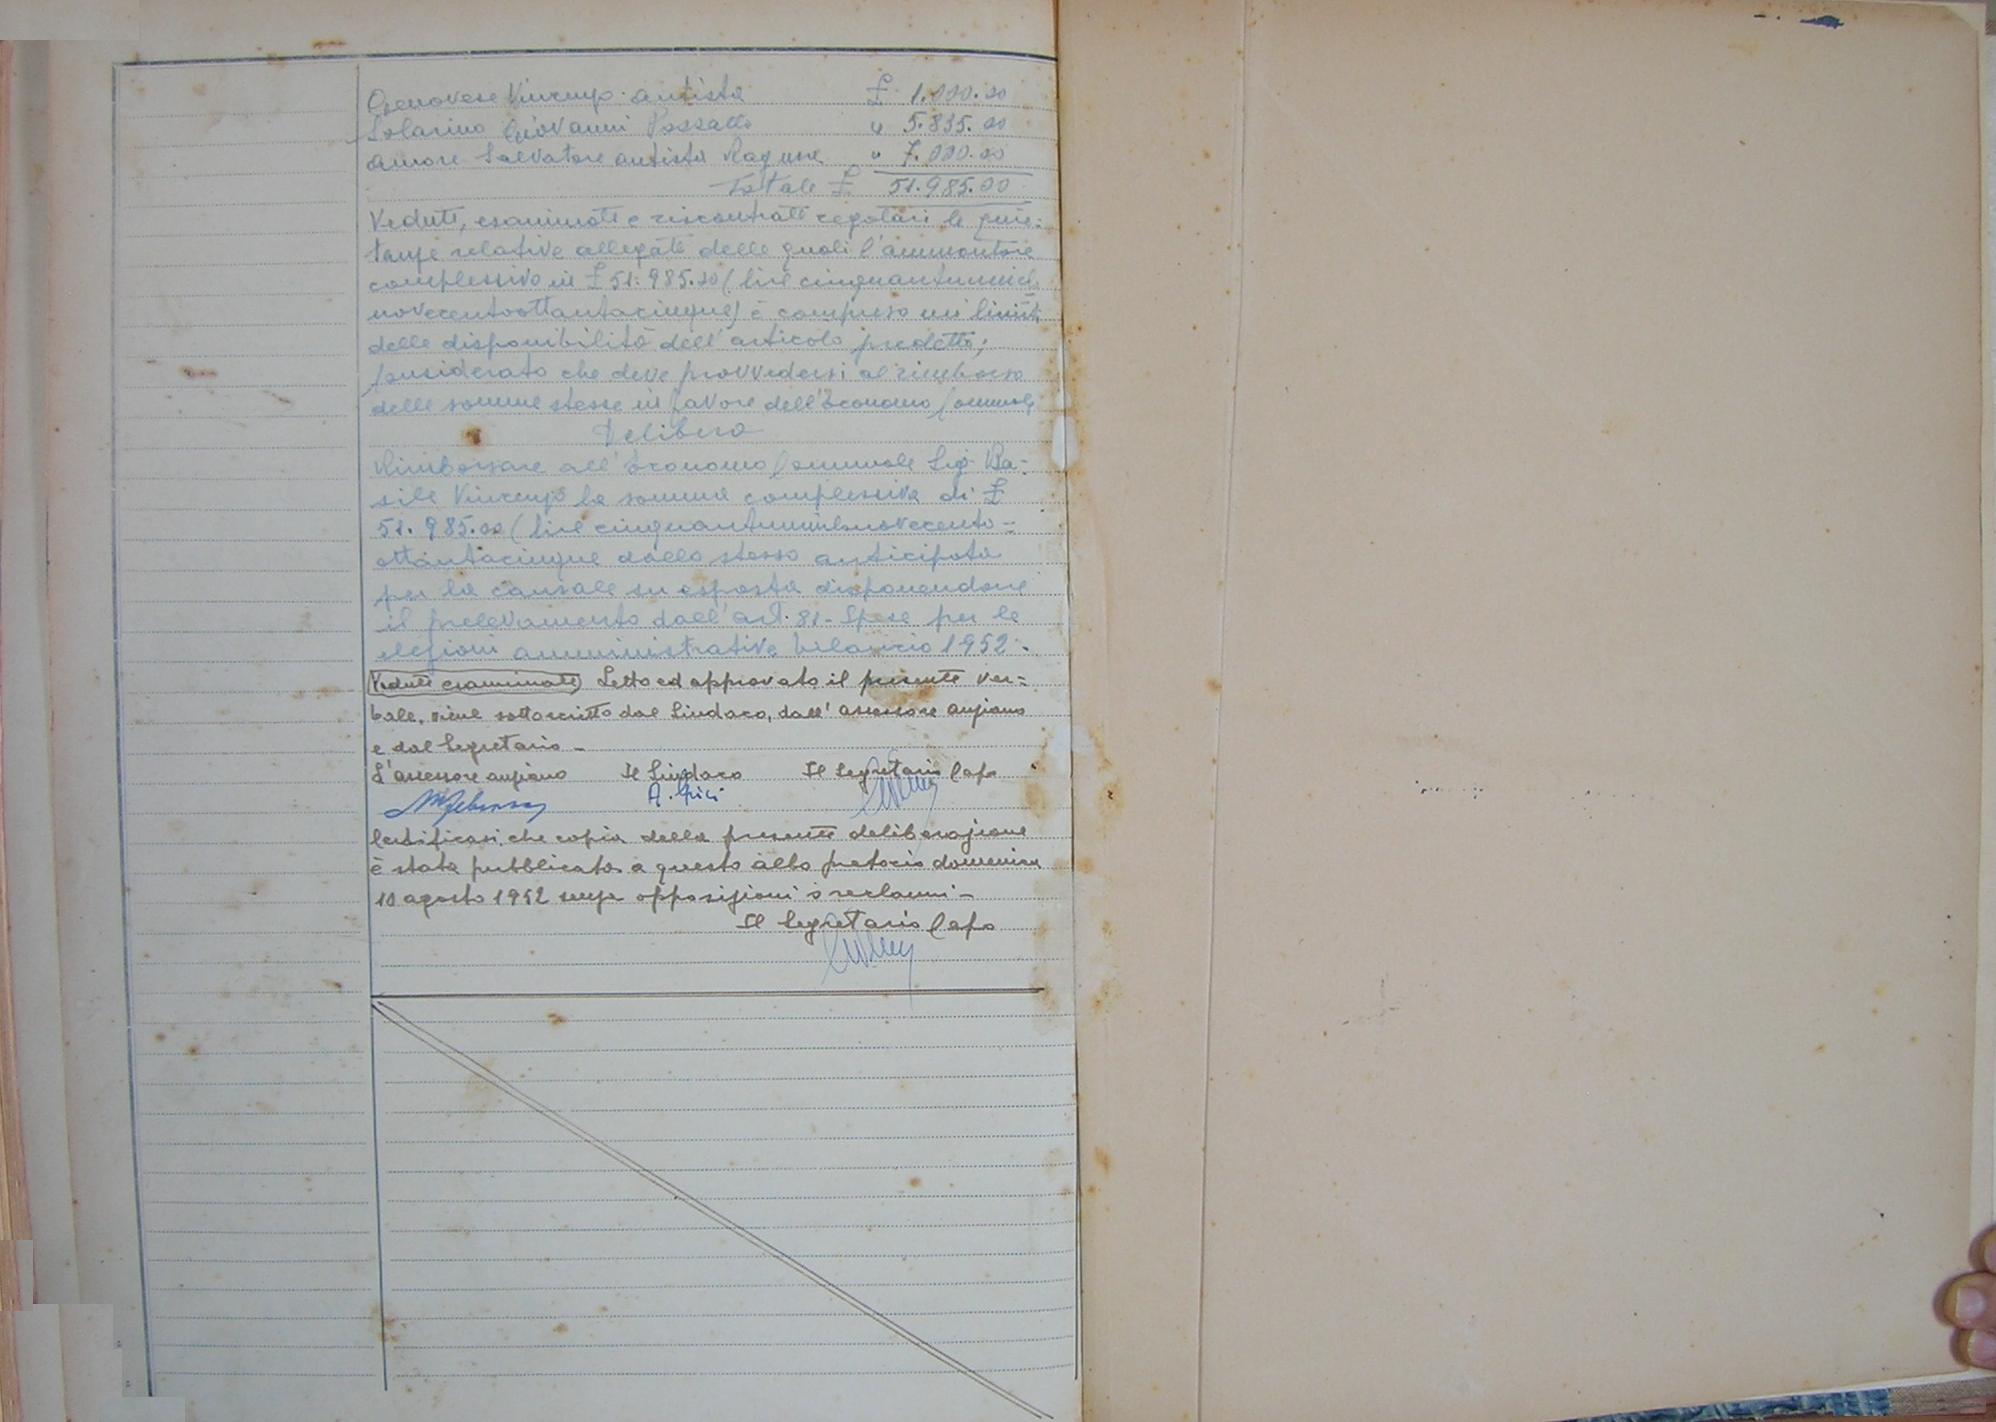 Genovese Vincenzo autista £ 1.000.00
Solarino Giovanni Possatto " 5.835.00
Amore Salvatore autista Ragusa " 7.000.00
Totale £ 51.985.00
Vedute, esaminate e riscontrate regolari le quie=
tanze relative allegate delle quali l'ammontare
complessivo in £ 51.985.00 (lire cinquantunmila
novecentoottantacinque) è compreso nei limiti
delle disponibilità dell'articolo predetto;
Considerato che deve provvedersi al rimborso
delle somme stesse in favore dell'Economo Comunale
Delibera
Rimborsare all'Economo Comunale Sig. Ba=
sile Vincenzo la somma complessiva di £
51.985.00 (lire cinquantunmilanovecento=
ottantacinque dallo stesso anticipata
per la causale su esposta disponendone
il prelevamento dall'art. 81 - Spese per le
elezioni amministrative bilancio 1952.
(Vedute esaminate) Letto ed approvato il presente ver=
bale, viene sottoscritto dal Sindaco, dall'assessore anziano
e dal Segretario -
L'assessore anziano Il Sindaco Il Segretario Capo
Certificasi che copia della presente deliberazione
è stata pubblicata a questo albo pretorio domenica
10 agosto 1952 senza opposizioni o reclami -
Il Segretario Capo